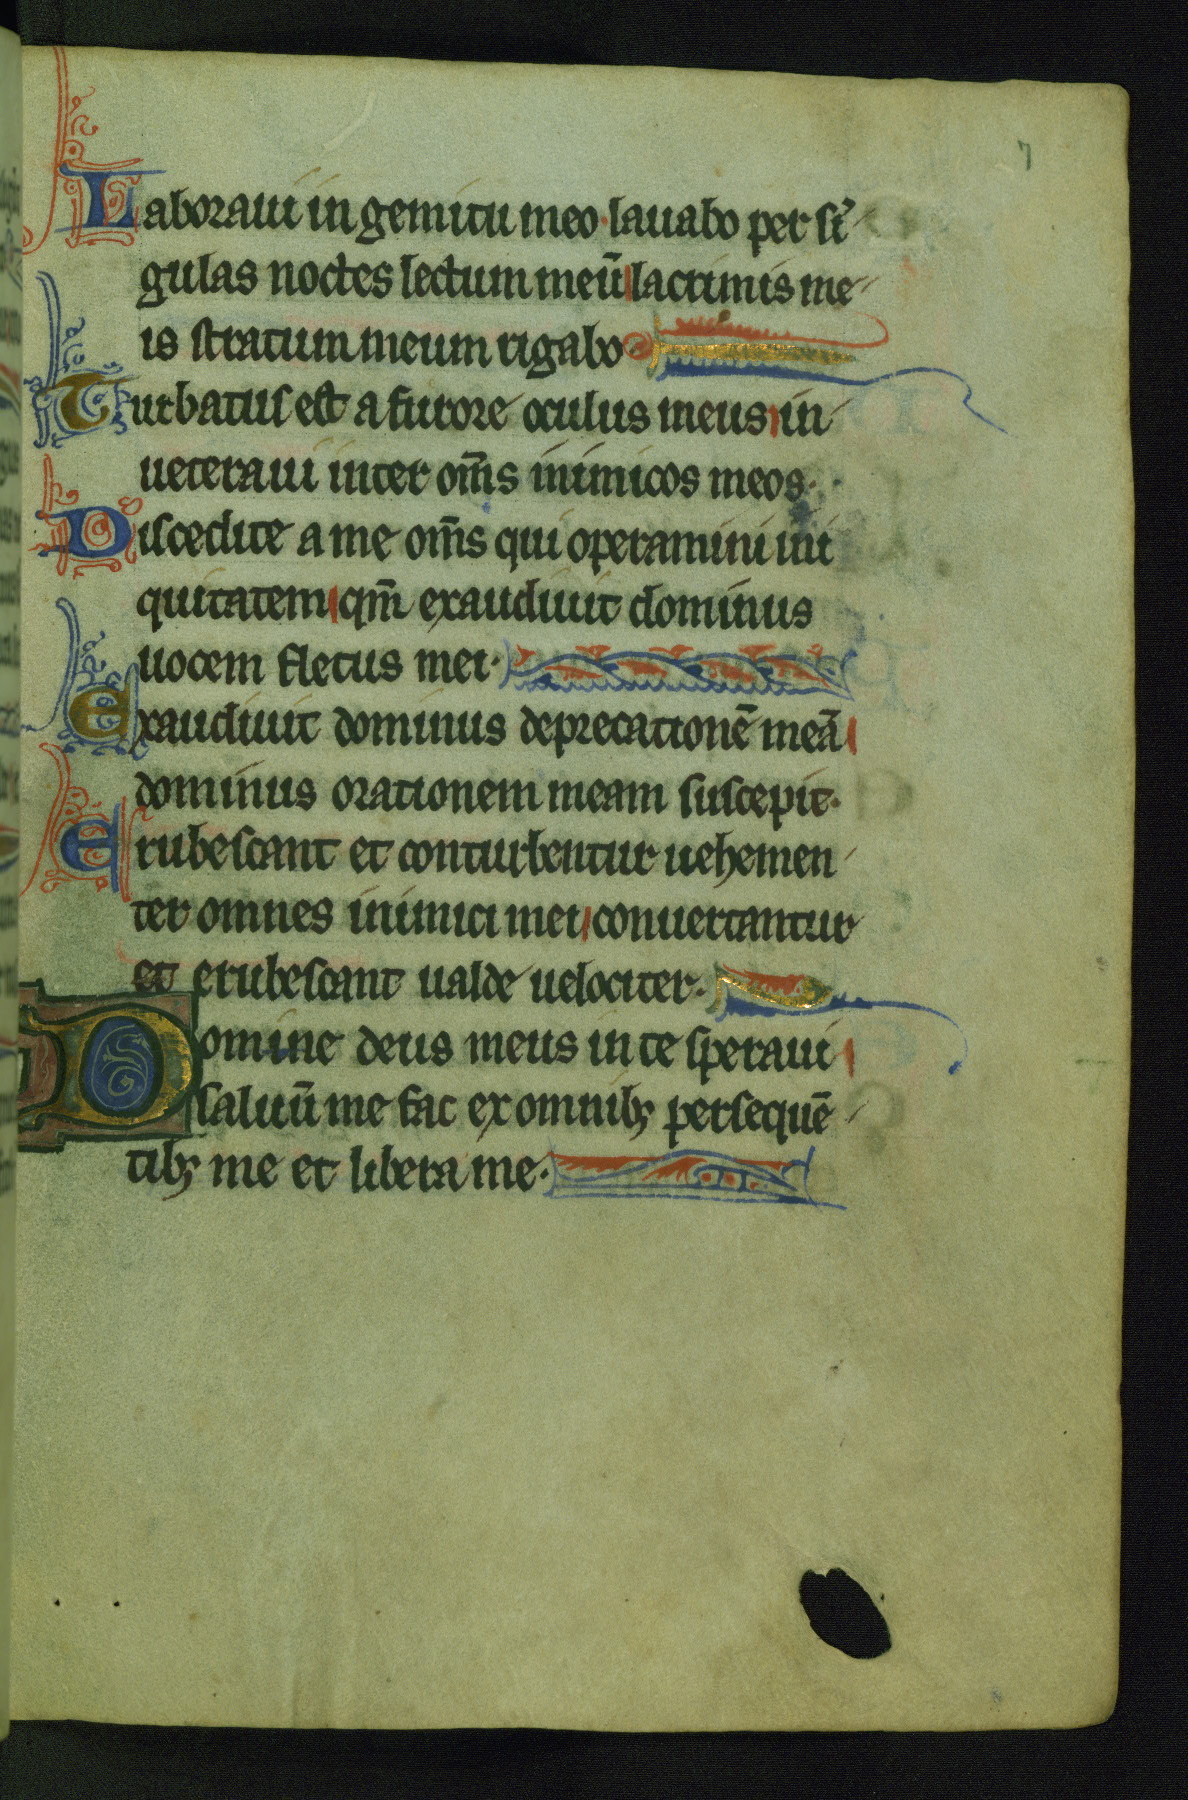 7
Laboraui in gemitu meo· lauabo per sī
gulas noctes lectum meū lacrimis me
is stratum meum rigabo·
Turbatus est a furore oculus meus in
ueteraui inter om̄s inimicos meos·
Discedite a me om̄s qui operamini ini
quitatem qm̄ exaudiuit dominus
uocem fletus mei·
Exaudiuit dominus deprecationē meā
dominus orationem meam suscepit·
Erubescant et conturbentur uehemen
ter omnes inimici mei conuertantur
et erubescant ualde uelociter·
Domine deus meus in te speraui
saluū me fac ex omnibꝫ persequē
tibꝫ me et libera me·